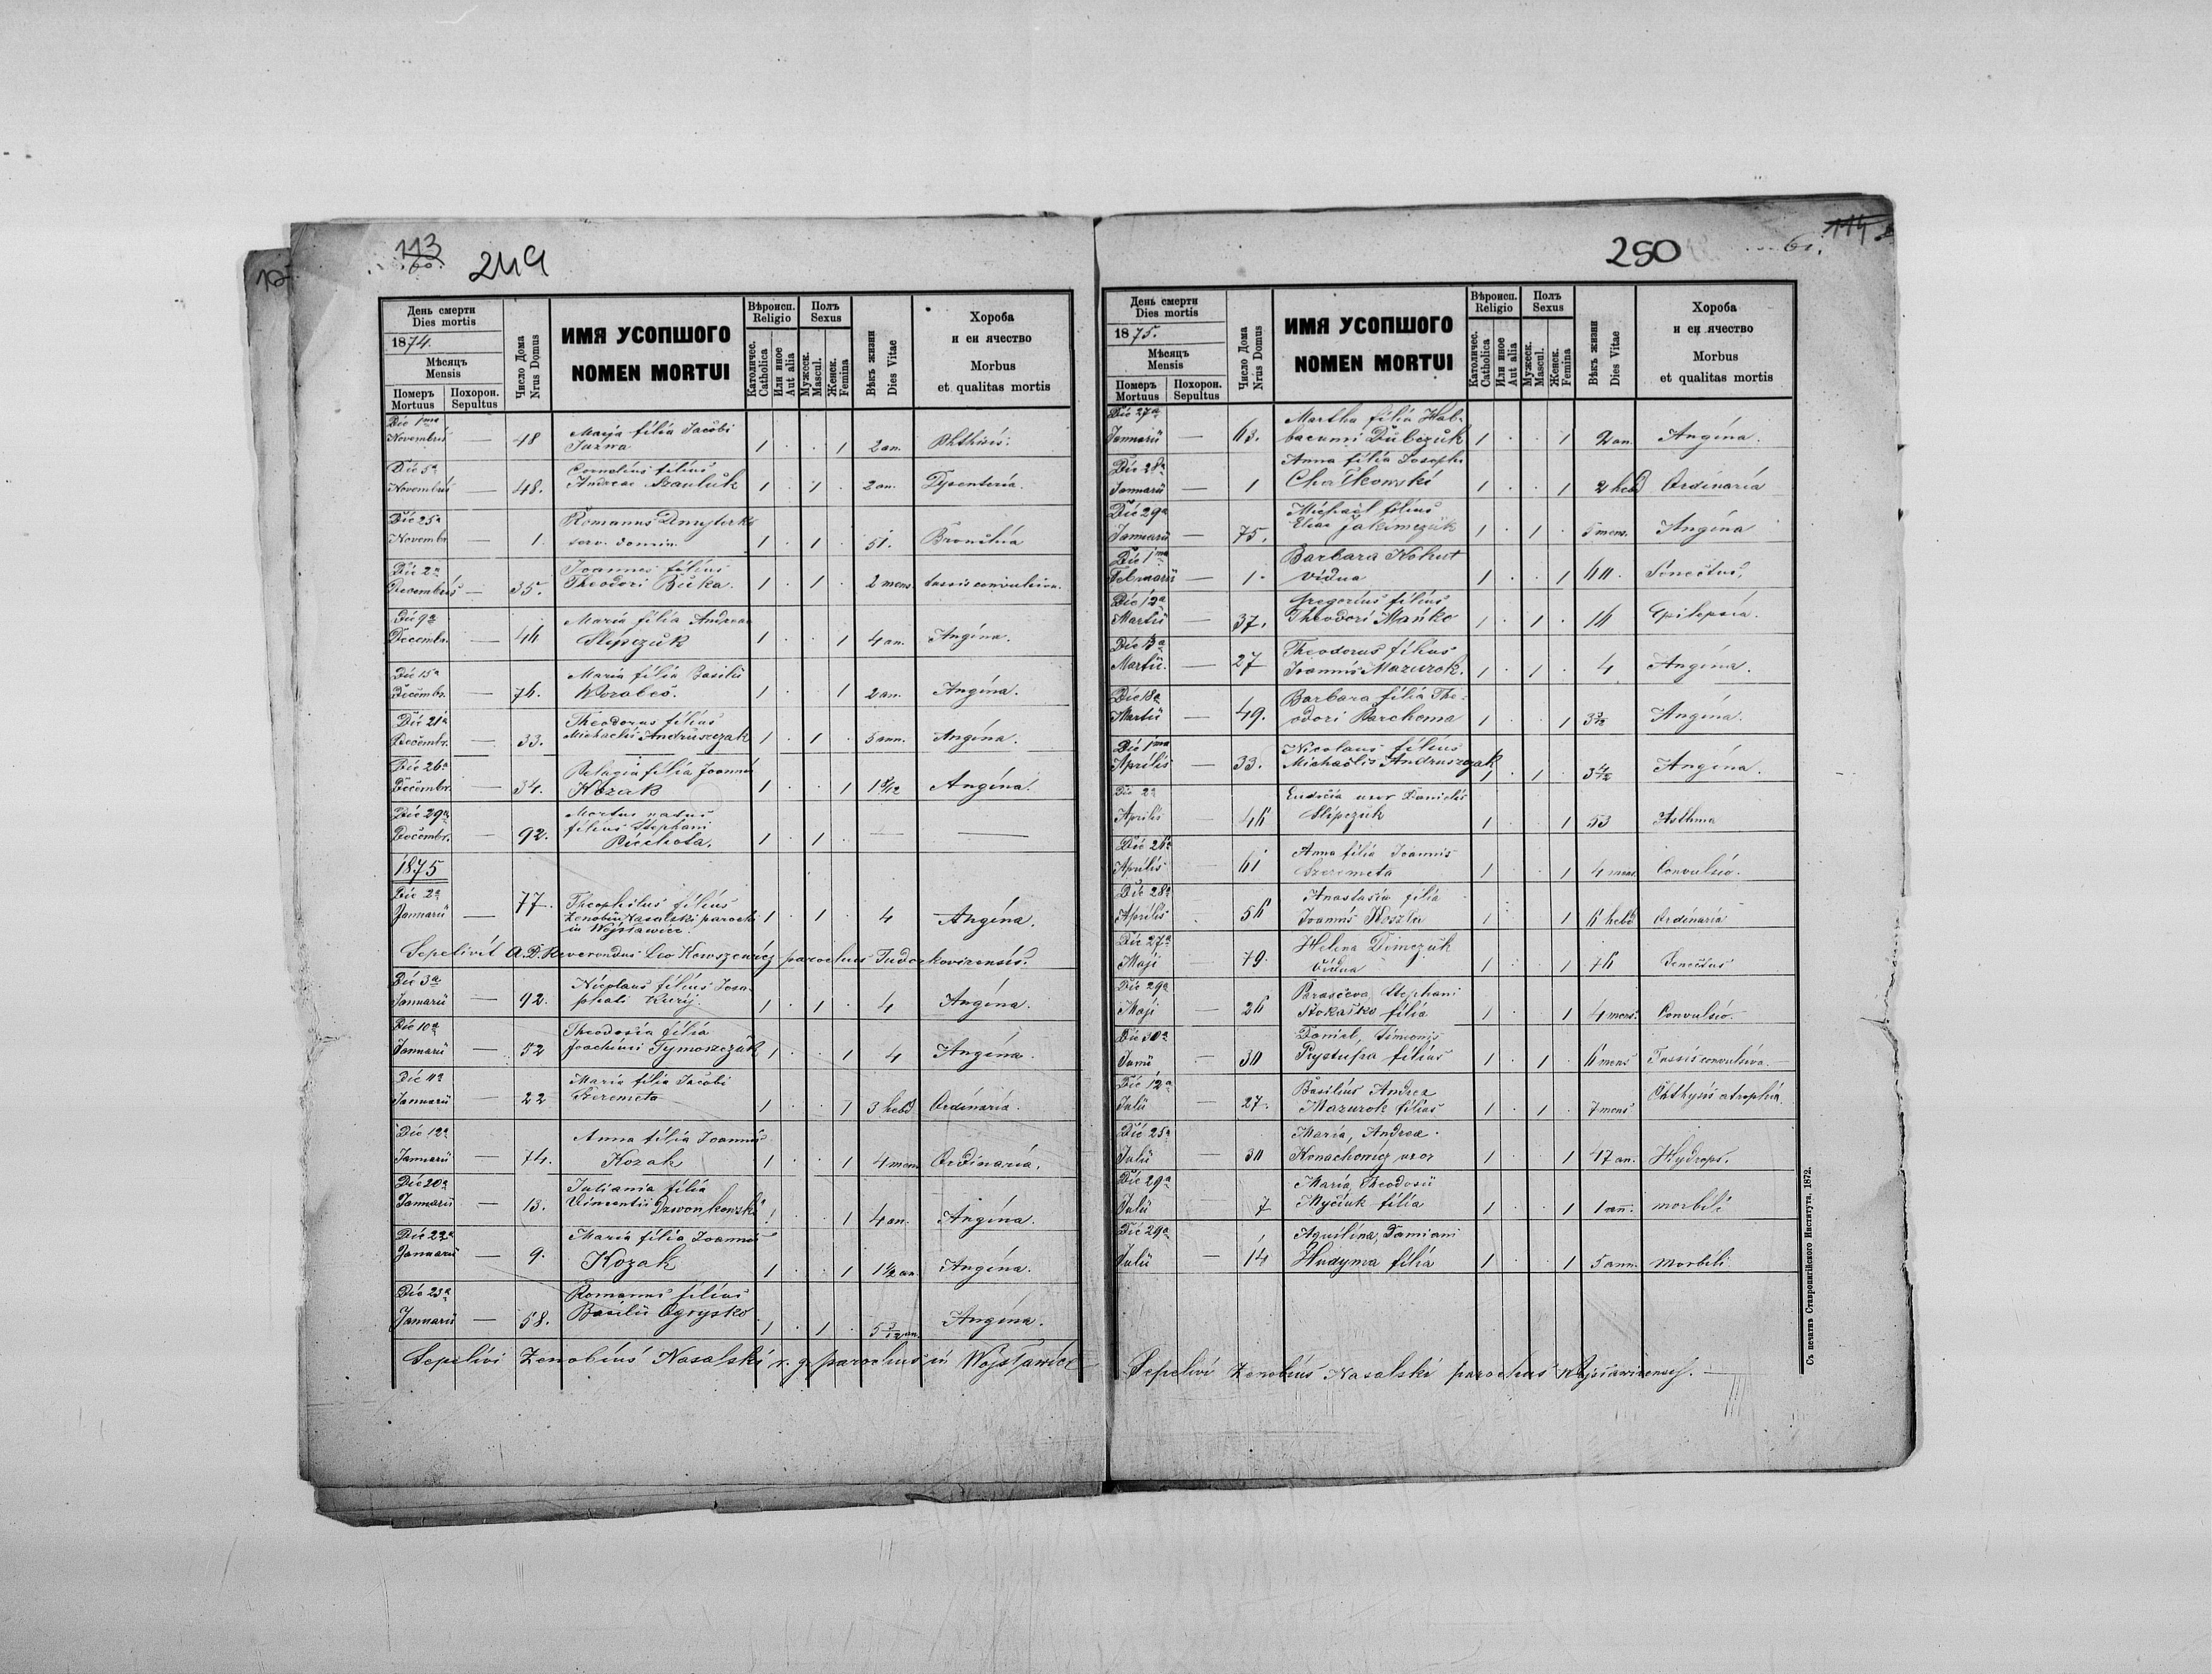 113
60.
249
День смерти
Dies mortis
1874.
Мѣсяцъ
Mensis
Померъ
Mortuus
Похорон.
Sepultus
Число Дома
Nrus Domus
ИМЯ УСОПШОГО
NOMEN MORTUI
Вѣроисп.
Religio
Католичес.
Catholica
Или иное
Aut alia
Полъ
Sexus
Мужеск.
Mascul.
Женск.
Femina
Вѣкъ жизни
Dies Vitae
Хороба
и еи ячество
Morbus
et qualitas mortis
Die 1ma
Maria filia Jacobi
Novembris — 48 Jazwa 1 . . 1 2 an. Phthisis.
Die 5a Cornelius filius
Novembris — 48. Andreae Szauluk 1 . 1 . 2 an. Dysenteria.
Die 25a Romanus Dmyterko
Novembr. — 1. serv. domin. 1 . 1 . 51. Bronchia
Die 2a Joannes filius
Decembris — 35. Theodori Buka. 1 . 1 . 2 mens. tussis convulsiva.
Die 9a Maria filia Andreae
Decembr. — 46 Slipczuk 1 . . 1 4 an. Angina.
Die 15a Maria filia Basilii
Decembr. — 76. Worobec. 1 . . 1 2 an. Angina.
Die 21a Theodorus filius
Decembr. — 33. Michaelis Andruszczak 1 . 1 . 5 ann. Angina.
Die 26a Pelagia filia Joannis
Decembr. — 34. Kozak 1 . . 1 Angina.
Die 29a Mortus natus
filius Stephani
Decembr. — 92. Piechota. 1 . 1 . — —
1875
Die 2a Theophilus filius
Januarii — 77. Zenobii Nasalski parochi 1 . 1 . 4 Angina.
in Wojsławice.
Sepelivit A.D. Reverendus Leo Kowszewicz parochus Tudorkovicensis.
Die 3a Nicolaus filius Josa-
Januarii — 92. phati Kurij 1 . 1 . 4 Angina.
Die 10a Theodosia filia
Januarii — 52 Joachimi Tymoszczuk 1 . . 1 4 Angina.
Die 11a Maria filia Jacobi
Januarii 22 Szeremeta 1 . . 1 3 hebd Ordinaria.
Die 12a Anna filia Joannis
Januarii — 74. Kozak 1 . . 1 4 mens Ordinaria.
Die 20a Juliania filia
Januarii — 13. Vincentii Dzwonkowski 1 . . 1 4 an. Angina.
Die 22a Maria filia Joannis
Januarii — 9. Kozak 1 . . 1 1 1/2 an. Angina.
Die 23a Romanus filius
Januarii — 58. Basilii Ogrysko 1 . 1 . 5 3/12 an. Angina.
Sepelivi Zenobius Nasalski r. g. parochus in Wojsławice
114
61.
250
День смерти
Dies mortis
1875.
Мѣсяцъ
Mensis
Померъ
Mortuus
Похорон.
Sepultus
Число Дома
Nrus Domus
ИМЯ УСОПШОГО
NOMEN MORTUI
Вѣроисп.
Religio
Католичес.
Catholica
Или иное
Aut alia
Полъ
Sexus
Мужеск.
Mascul.
Женск.
Femina
Вѣкъ жизни
Dies Vitae
Хороба
и еи ячество
Morbus
et qualitas mortis
Die 27a Martha filia Hab-
Januarii — 63. bacumi Dubczuk 1 . . 1 2 an. Angina.
Die 28a Anna filia Josephi
Januarii — 1 1 . . 1 2 hebd Ordinaria
Die 29a Michael filius
Januarii — 75. Eliae Jakimczuk 1 . 1 . 5 mens. Angina
Die 1ma Barbara Kohut
Februarii — 1. vidua 1 . . 1 Senectus.
Die 12a Gregorius filius
Martii — 37. Theodori Mańko 1 . 1 . 16 Epilepsia.
Theodorus filius
Martii. — 27 Joannis Mazurok. 1 . 1 . 4 Angina.
Die 18a Barbara filia The-
Martii — 49. odori Parchoma 1 . . 1 Angina.
Die 1ma Nicolaus filius
Aprilis — 33. Michaelis Andruszczak 1 . 1 . 3 4/12 Angina.
Die 2a Eudocia uxor Danielis
Aprilis — 46 Slipczuk 1 . . 1 53 Asthma
Die 26a Anna filia Joannis
Aprilis — 61 Szeremeta 1 . . 1 4 mens Convulsio.
Die 28a Anastasia filia
Aprilis 56 Joannis Koszla 1 . . 1 6 hebd Ordinaria
Die 27a Helena Dimczuk
Maji — 79. vidua 1 . . 1 76 Senectus
Die 29a Parasceva, Stephani
Maji — 26 Stokalko filia 1 . . 1 4 mens. Convulsio.
Die 30a Daniel, Simeonis
Junii — 30 Prystupa filius 1 . 1 . 6 mens Tussis convulsiva.
Die 12a Basilius Andrea
Julii — 27. Mazurok filius 1 . 1 . 7 mens Phthysis atrophia
Die 25a Maria, Andrea
Julii — 30 Konachowicz uxor 1 . . 1 47 an. Hydrops.
Die 29a Maria, Theodosii
Julii 7 Myciuk filia 1 . . 1 1 ann. morbili
Die 29a Aquilina, Damiani
Julii — 14 Hudyma filia 1 . . 1 5 ann. morbili.
Sepelivi Zenobius Nasalski parochus Wojsławicensis.
Съ печатнѣ Ставропигійского Института, 1872.